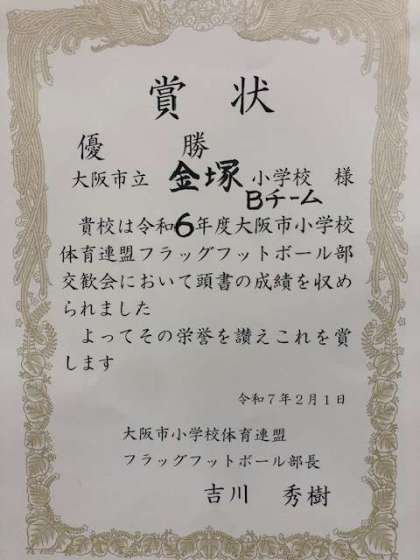 賞状
優勝
大阪市立 金塚 小学校 様
Bチーム
貴校は令和6年度大阪市小学校
体育連盟フラッグフットボール部
交歓会において頭書の成績を収め
られました
よってその栄誉を讃えこれを賞
します
令和7年2月1日
大阪市小学校体育連盟
フラッグフットボール部長
吉川 秀樹